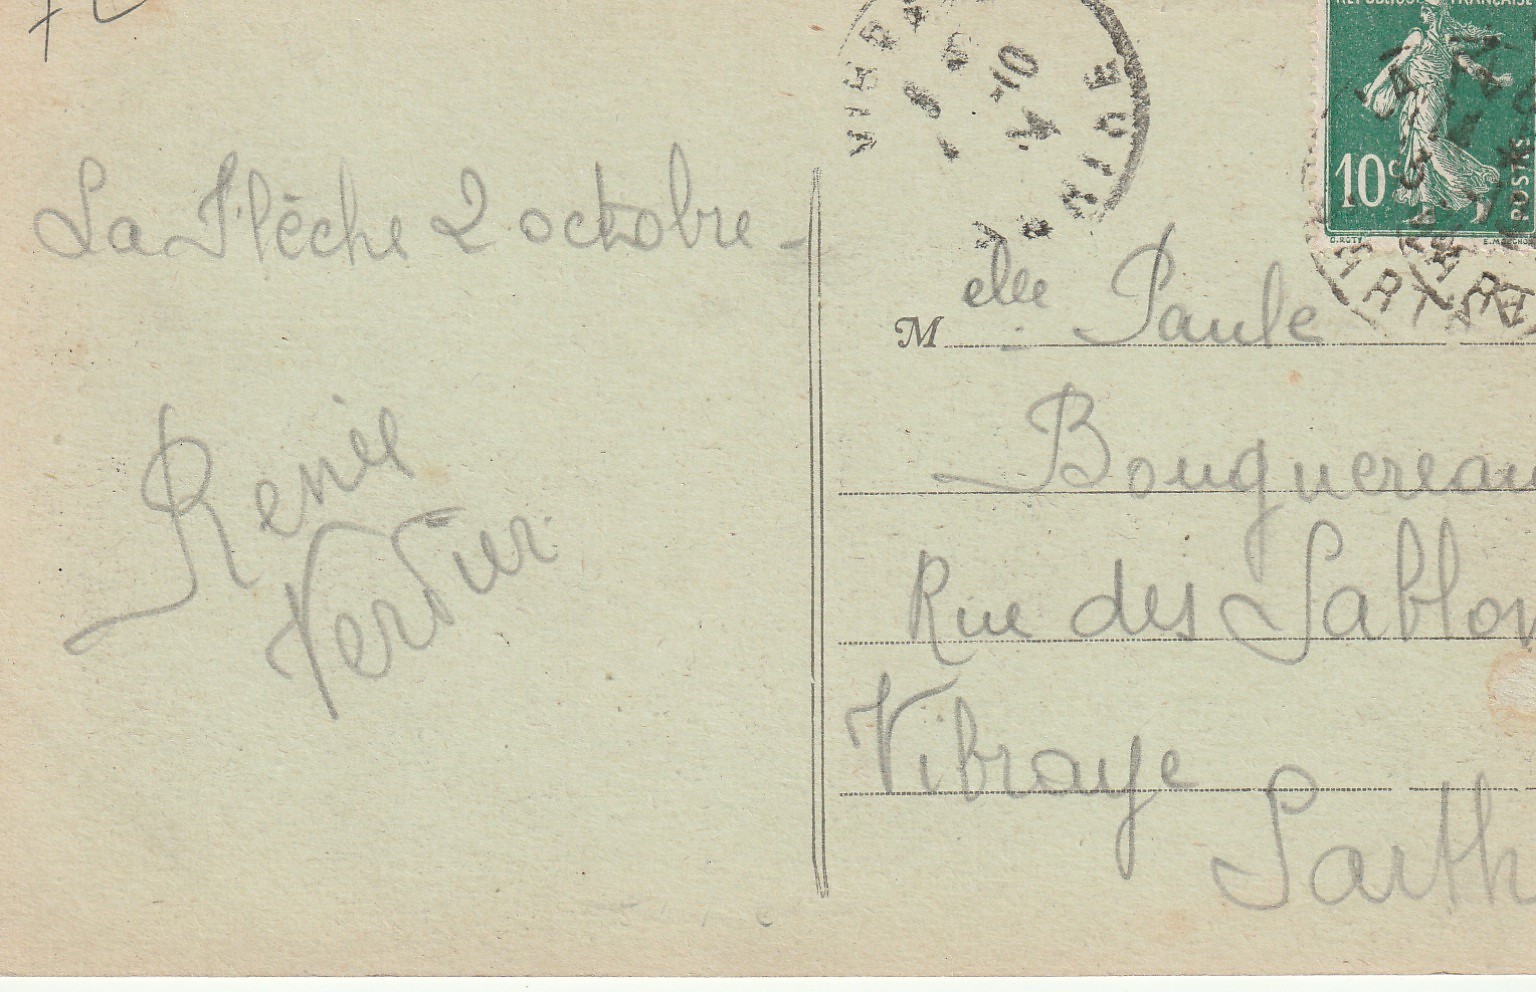 La Flèche 2 octobre -
Renée
Verdier
10
-10
RÉPUBLIQUE FRANÇAISE
10c
POSTES
O.ROTY
M elle Paule
Bouguereau
Rue des Sablon
Vibraye
Sarth